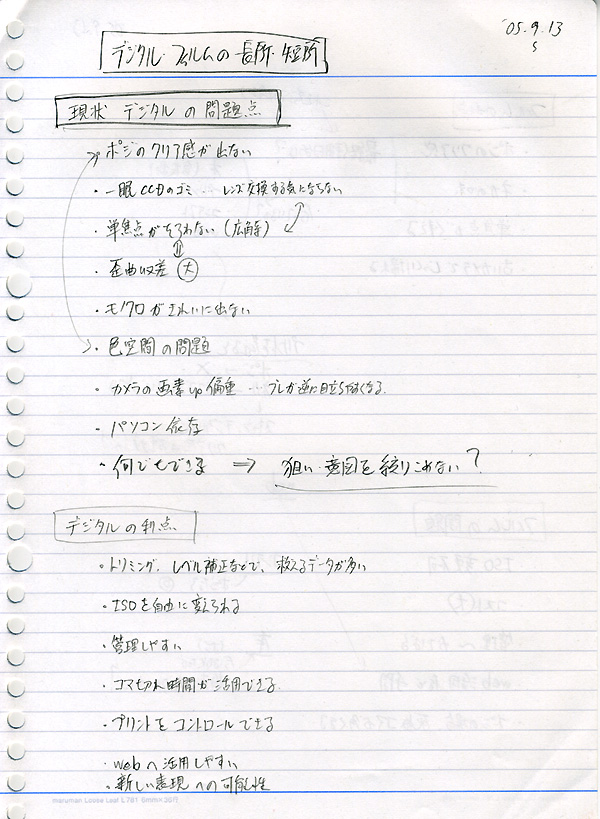 '05.9.13
デジタル・フィルムの長所・短所
現状 デジタルの問題点
・ポジのクリア感が出ない
・一眼CCDのゴミ … レンズ交換する気にならない
・単焦点がそろわない(広角)
・歪曲収差 大
・モノクロがきれいに出ない
・色空間の問題
・カメラの画素up偏重 … ブレが逆に目立ちやすくなる
・パソコン依存
・何でもできる ⇒ 狙い・意図を絞りこめない?
デジタルの利点
・トリミング、レベル補正などで、救えるデータが多い
・ISOを自由に変えられる
・管理しやすい
・コマ切れ時間が活用できる
・プリントをコントロールできる
・webへ活用しやすい
・新しい表現への可能性
maruman Loose Leaf L781 6mm×36行